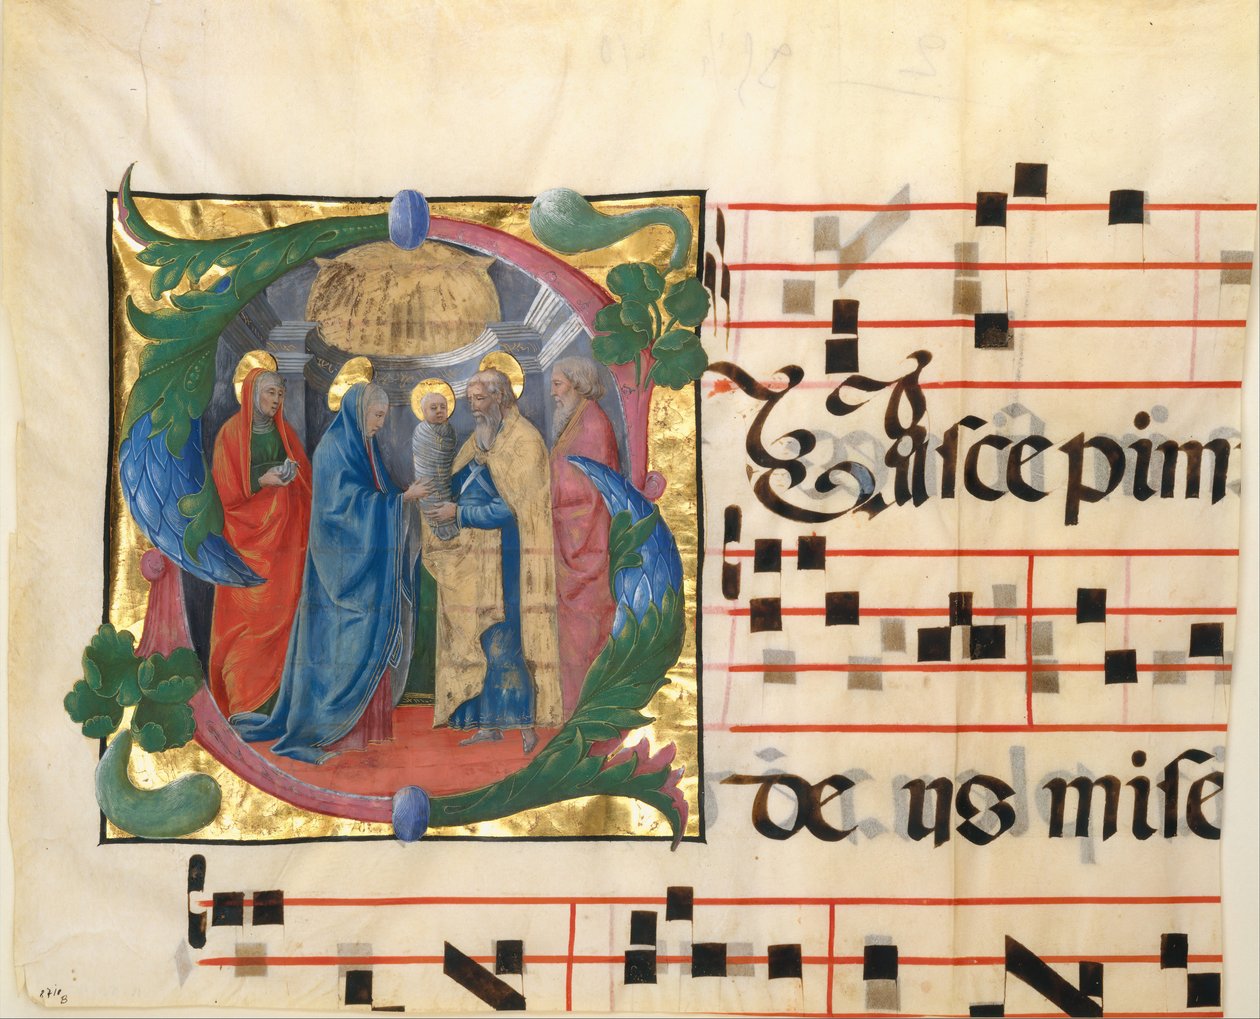 SUscepim
de us mise